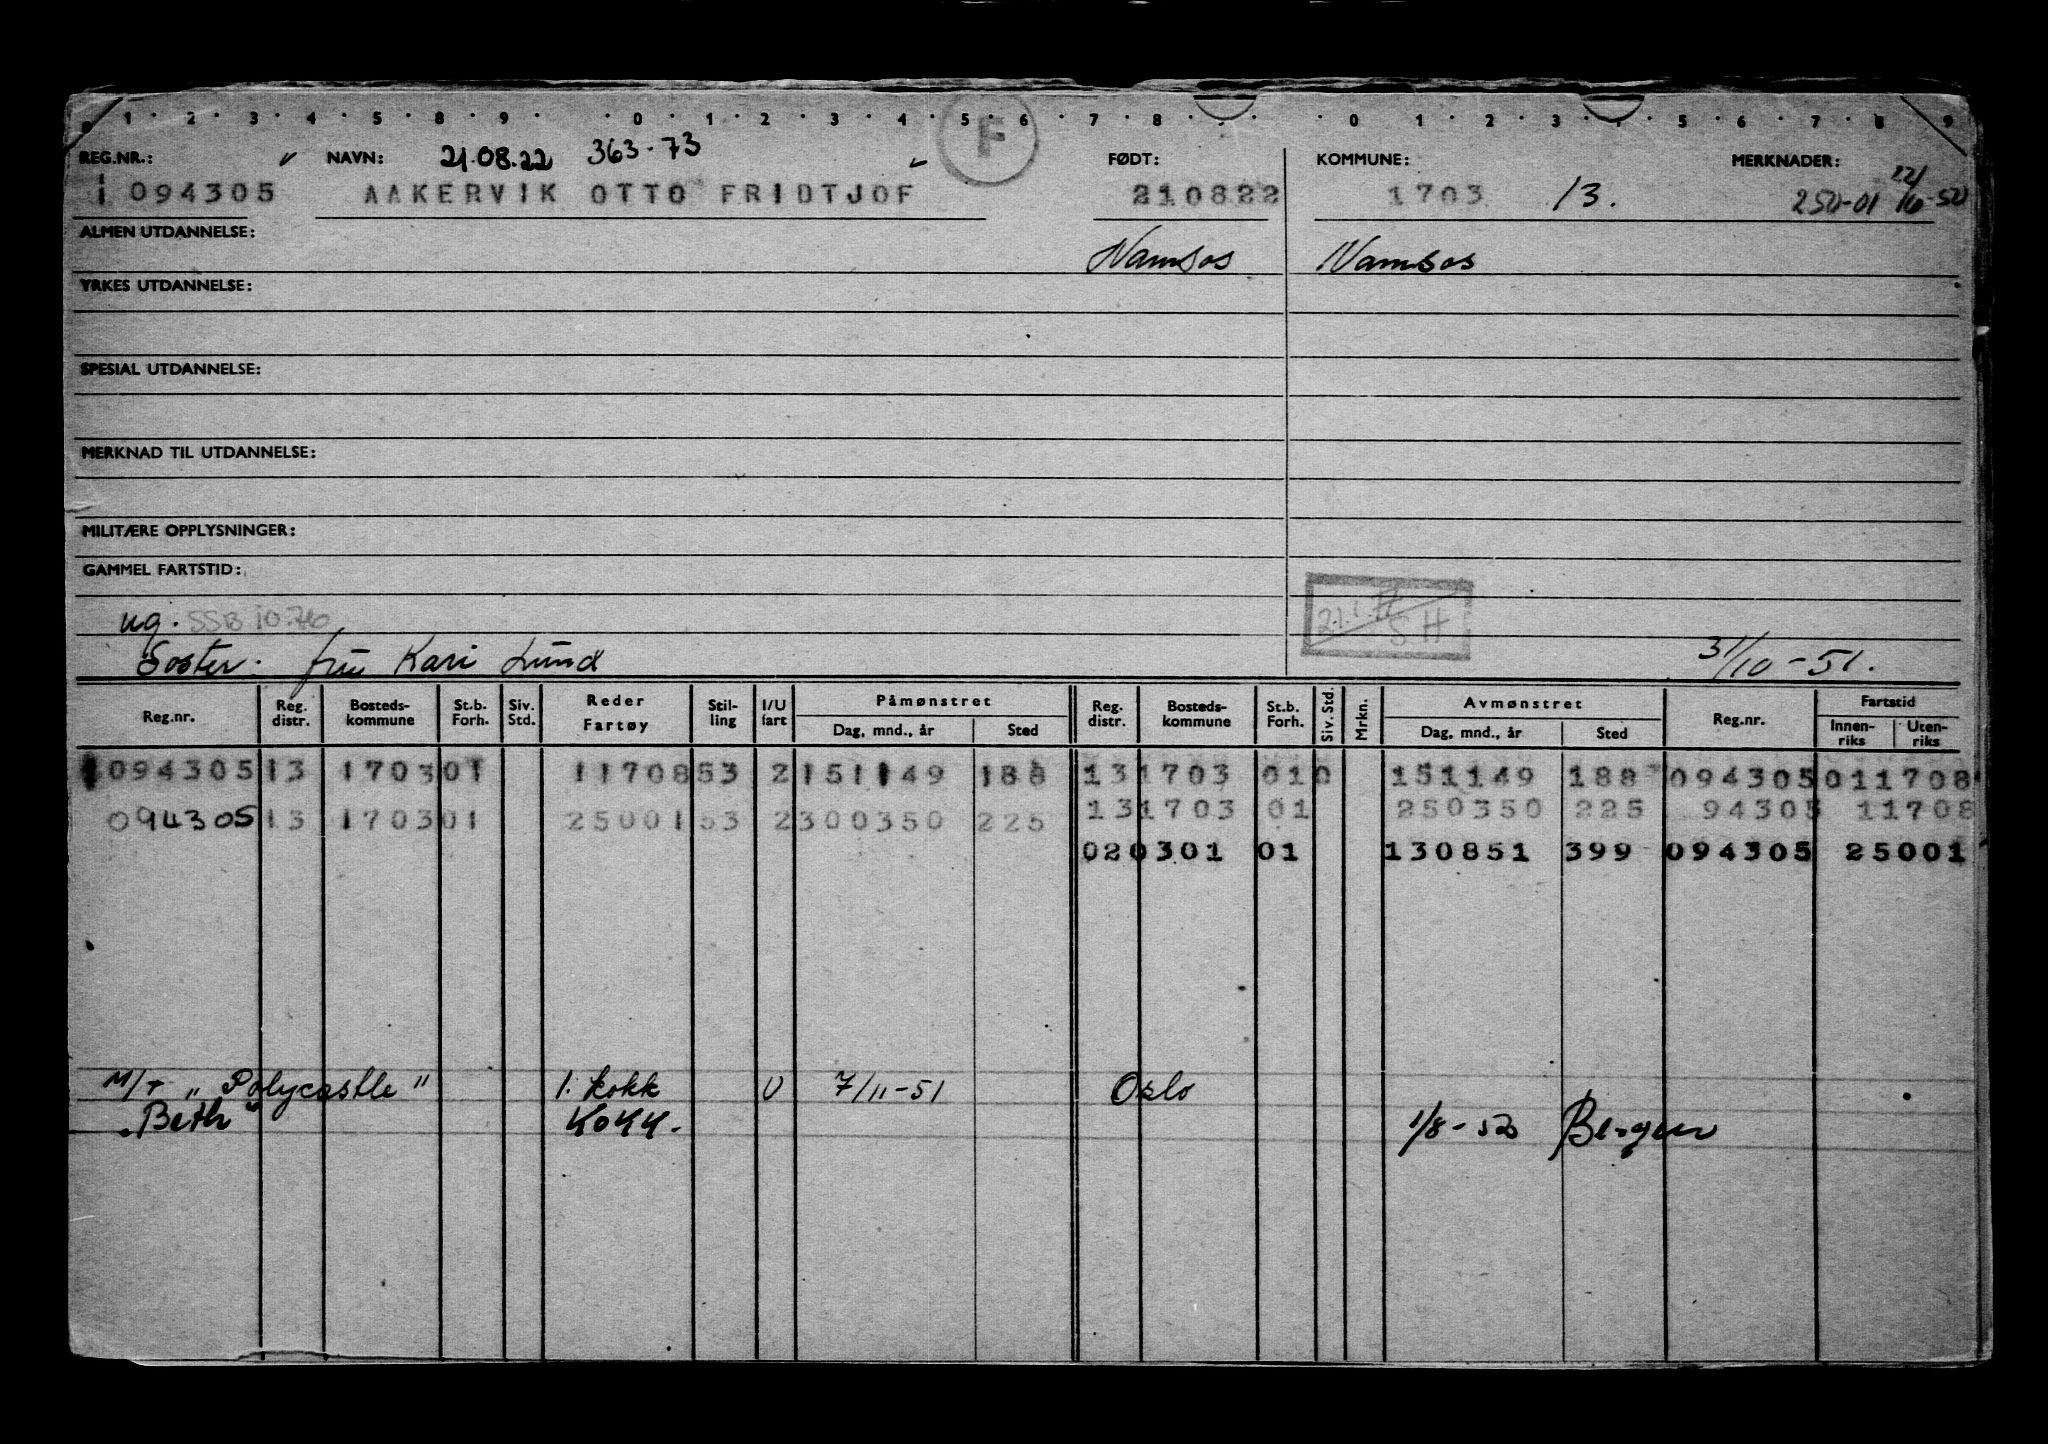 1 2 3 4 5 8 9 0 1 2 3 4 5 6 7 8 0 1 2 3 4 5 6 7 8 9
F
REG.NR.: NAVN: 21.08.22 363-73 FØDT: KOMMUNE: MERKNADER:
1 094305 AAKERVIK OTTO FRIDTJOF 210822 1703 13. 250-01 -50
ALMEN UTDANNELSE: Namsos Namsos
YRKES UTDANNELSE:
SPESIAL UTDANNELSE:
MERKNAD TIL UTDANNELSE:
MILITÆRE OPPLYSNINGER:
GAMMEL FARTSTID:
ug. SSB 10.76 21.1.77 SH
Søster: fru Kari Lund 31/10-51.
Reg.nr. Reg. distr. Bosteds-kommune St.b. Forh. Siv. Std. Reder Fartøy Stil-ling I/U fart Påmønstret Dag, mnd., år Sted Reg. distr. Bosteds-kommune St.b. Forh. Siv. Std. Mrkn. Avmønstret Dag, mnd., år Sted Reg.nr. Fartstid Innen-riks Uten-riks
094305 13 1703 01 11708 53 2 151149 188 13 1703 01 0 151149 188 094305 011708
094305 13 1703 01 25001 53 2 300350 225 13 1703 01 250350 225 94305 11708
02 0301 01 130851 399 094305 25001
M/T "Polycastle" 1. kokk U 7/11-51 Oslo
"Beth" Kokk. 1/8-53 Bergen